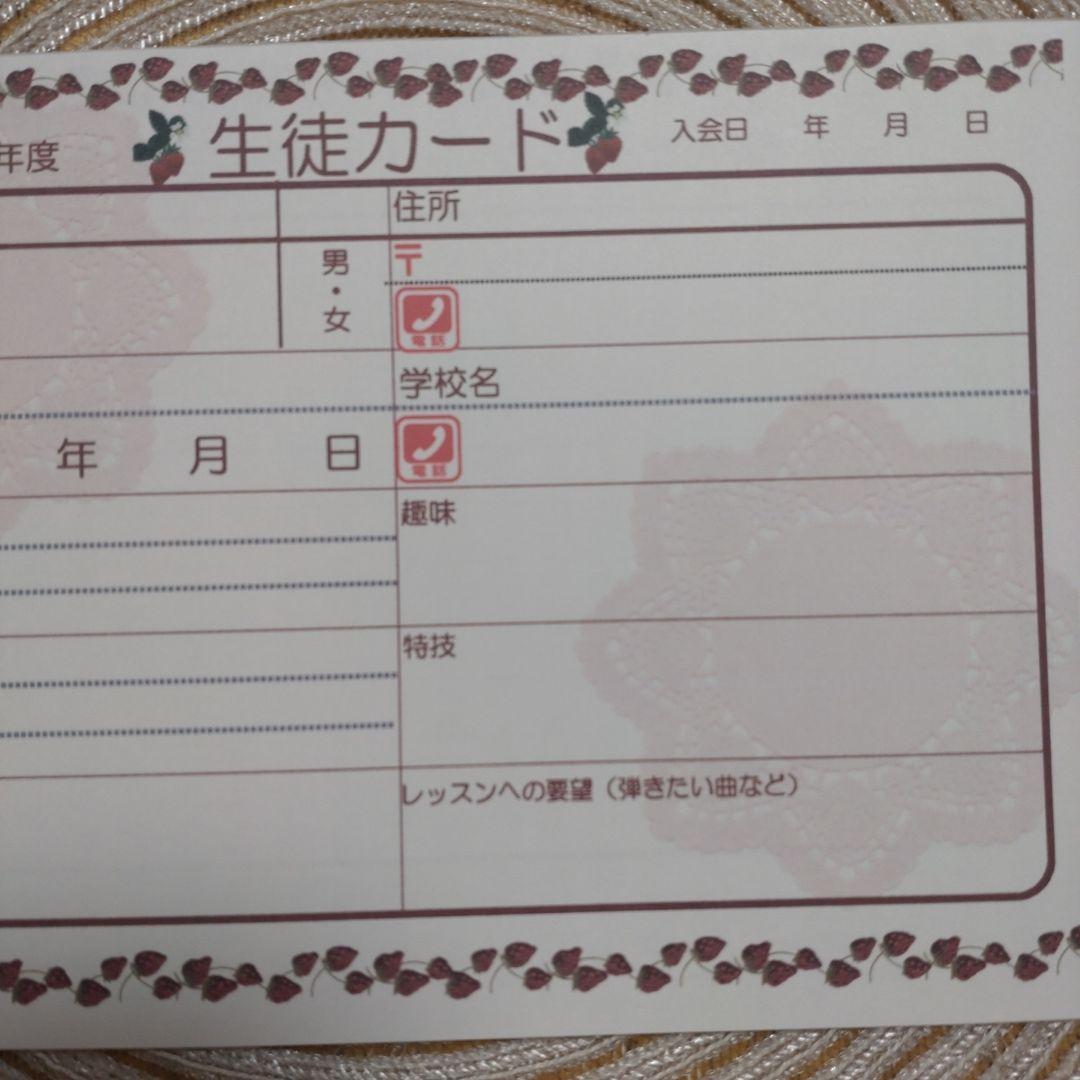 年度 生徒カード 入会日 年 月 日
住所
男・女
〒
電話
学校名
年 月 日
電話
趣味
特技
レッスンへの要望（弾きたい曲など）